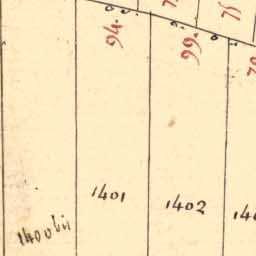 94.
99.
75
1401
1402
1400 bis